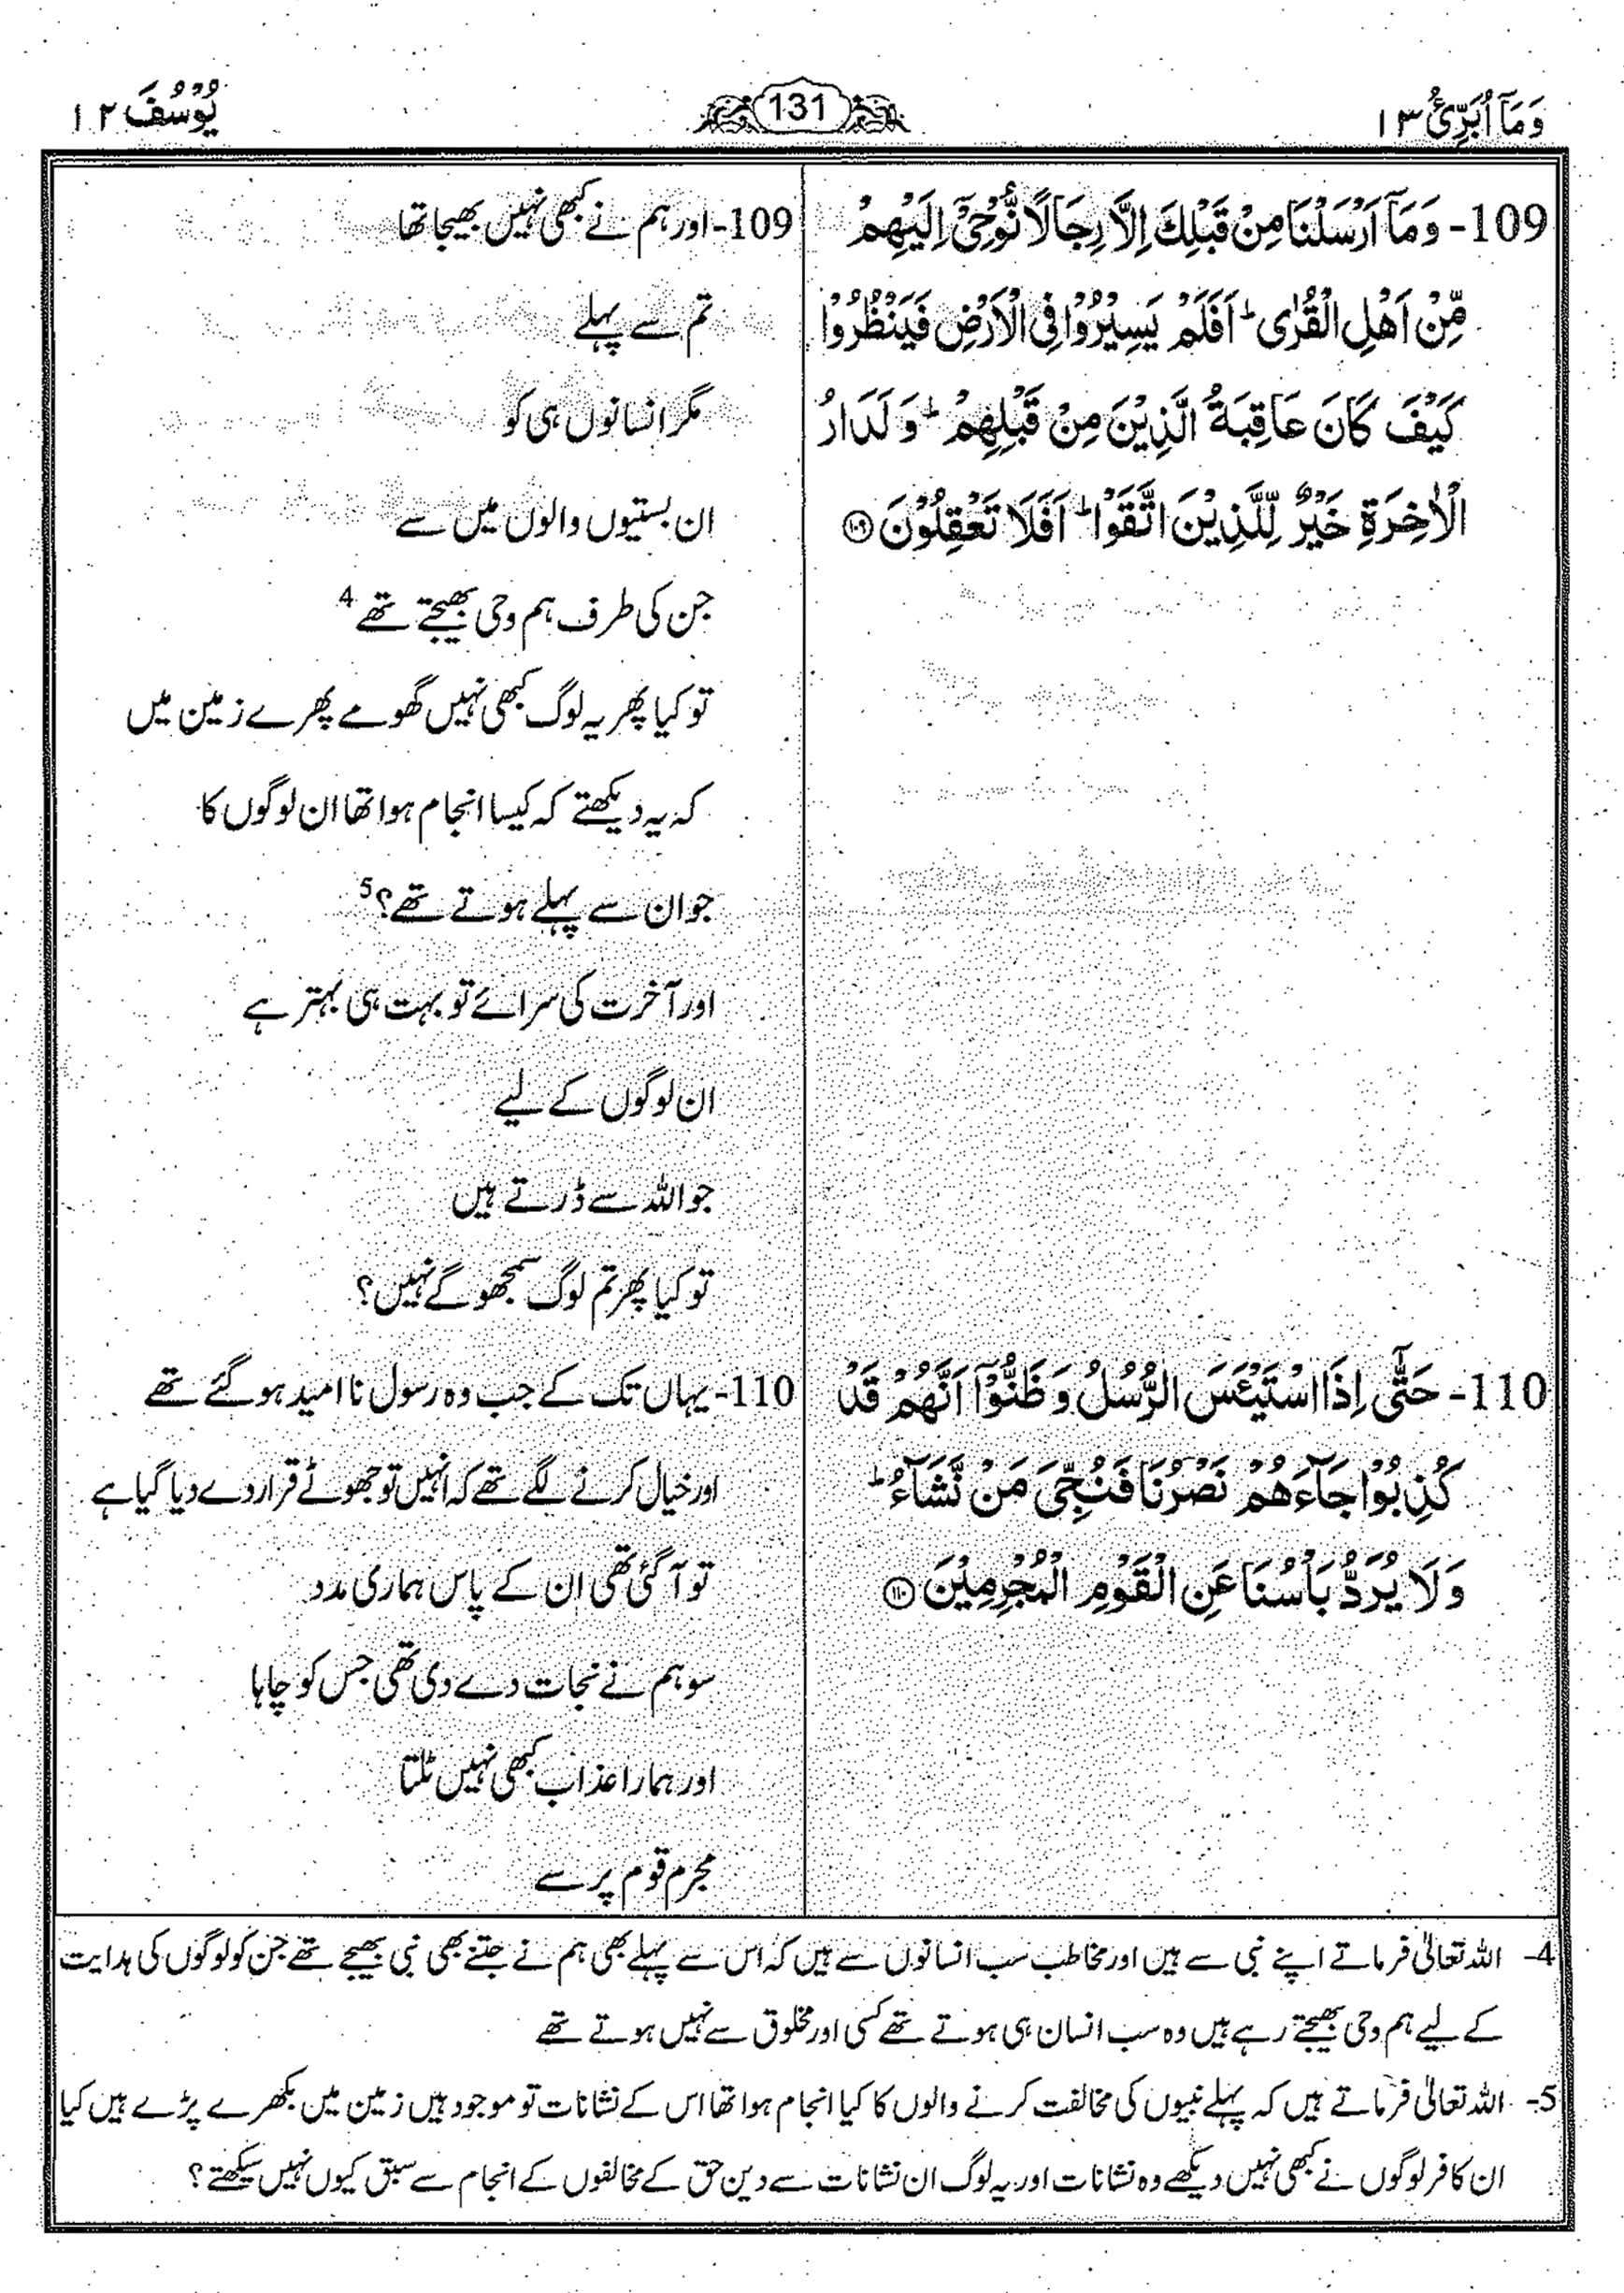 وَمَآ اُبَرِّئُ ١٣
131
يُوْسُفَ ١٢
109- وَمَآ اَرْسَلْنَا مِنْ قَبْلِكَ اِلَّا رِجَالًا نُّوْحِيْٓ اِلَيْهِمْ
مِّنْ اَهْلِ الْقُرٰى ؕ اَفَلَمْ يَسِيْرُوْا فِى الْاَرْضِ فَيَنْظُرُوْا
كَيْفَ كَانَ عَاقِبَةُ الَّذِيْنَ مِنْ قَبْلِهِمْ ؕ وَلَدَارُ
الْاٰخِرَةِ خَيْرٌ لِّلَّذِيْنَ اتَّقَوْا ؕ اَفَلَا تَعْقِلُوْنَ ۝١٠٩
110- حَتّٰٓى اِذَا اسْتَيْـَٔسَ الرُّسُلُ وَظَنُّوْٓا اَنَّهُمْ قَدْ
كُذِبُوْا جَآءَهُمْ نَصْرُنَا فَنُجِّىَ مَنْ نَّشَآءُ ؕ
وَلَا يُرَدُّ بَاْسُنَا عَنِ الْقَوْمِ الْمُجْرِمِيْنَ ۝١١٠
109- اور ہم نے کبھی نہیں بھیجا تھا
تم سے پہلے
مگر انسانوں ہی کو
ان بستیوں والوں میں سے
جن کی طرف ہم وحی بھیجتے تھے 4
تو کیا پھر یہ لوگ کبھی نہیں گھومے پھرے زمین میں
کہ یہ دیکھتے کہ کیسا انجام ہوا تھا ان لوگوں کا
جو ان سے پہلے ہوتے تھے؟ 5
اور آخرت کی سرائے تو بہت ہی بہتر ہے
ان لوگوں کے لیے
جو اللہ سے ڈرتے ہیں
تو کیا پھر تم لوگ سمجھو گے نہیں؟
110- یہاں تک کے جب وہ رسول نا امید ہو گئے تھے
اور خیال کرنے لگے تھے کہ انہیں تو جھوٹے قرار دے دیا گیا ہے
تو آ گئی تھی ان کے پاس ہماری مدد
سو ہم نے نجات دے دی تھی جس کو چاہا
اور ہمارا عذاب کبھی نہیں ٹلتا
مجرم قوم پر سے
4- اللہ تعالیٰ فرماتے اپنے نبی سے ہیں اور مخاطب سب انسانوں سے ہیں کہ اس سے پہلے بھی ہم نے جتنے بھی نبی بھیجے تھے جن کو لوگوں کی ہدایت
کے لیے ہم وحی بھیجتے رہے ہیں وہ سب انسان ہی ہوتے تھے کسی اور مخلوق سے نہیں ہوتے تھے
5- اللہ تعالیٰ فرماتے ہیں کہ پہلے نبیوں کی مخالفت کرنے والوں کا کیا انجام ہوا تھا اس کے نشانات تو موجود ہیں زمین میں بکھرے پڑے ہیں کیا
ان کافر لوگوں نے کبھی نہیں دیکھے وہ نشانات اور یہ لوگ ان نشانات سے دین حق کے مخالفوں کے انجام سے سبق کیوں نہیں سیکھتے؟